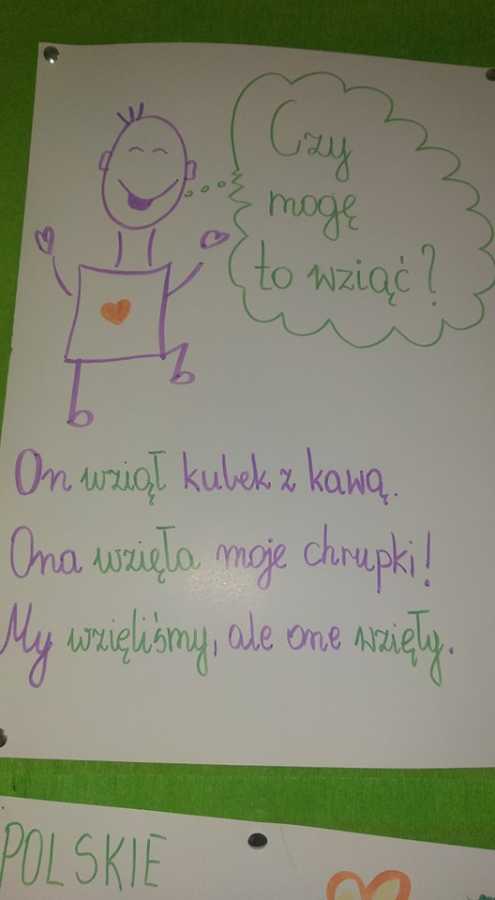 Czy
mogę
to wziąć?
On wziął kubek z kawą.
Ona wzięła moje chrupki!
My wzięliśmy, ale one wzięły.
POLSKIE